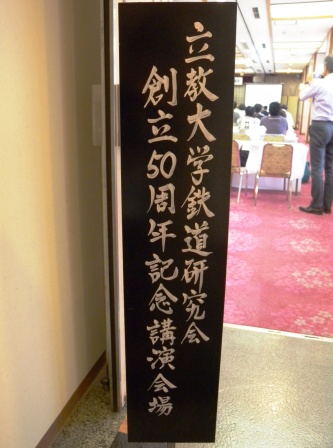 立教大学鉄道研究会
創立50周年記念講演会場